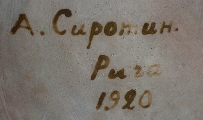 А. Сиротин.
Рига
1920